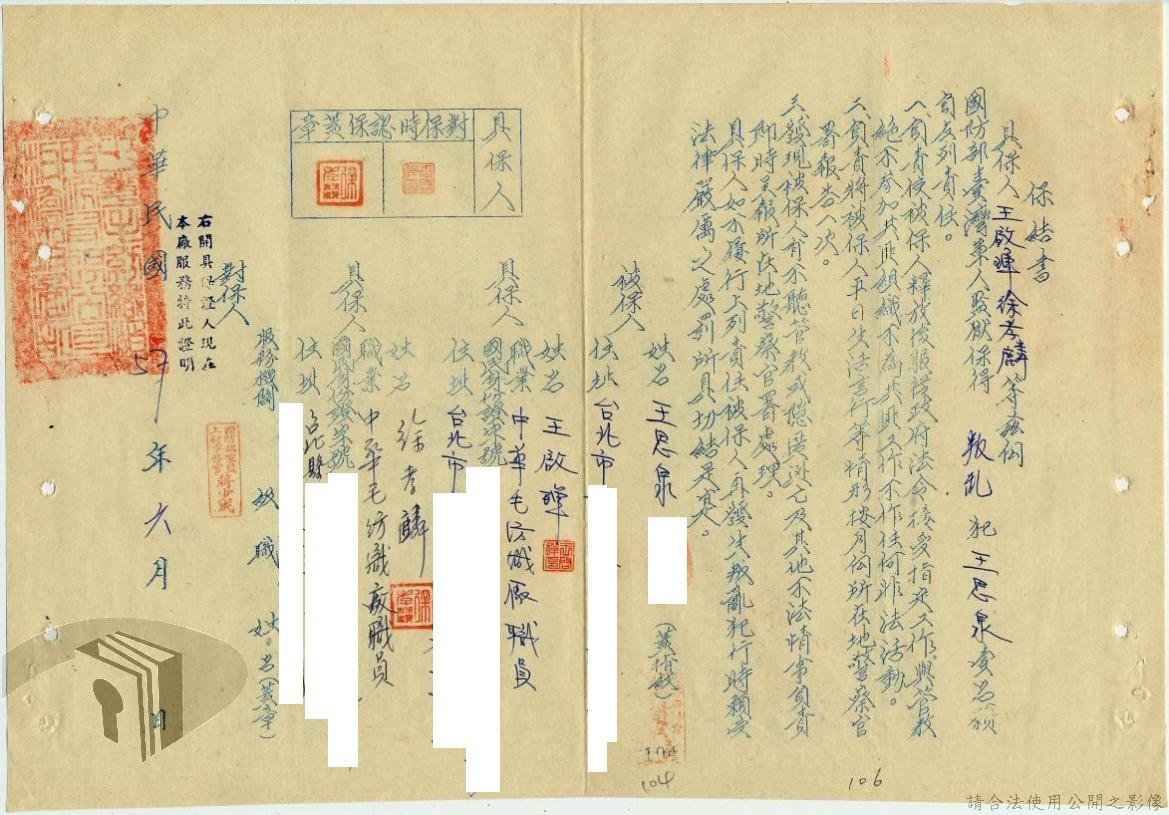 保結書
具保人王啟暉 徐孝麟等茲向
國防部臺灣軍人監獄保得 叛亂犯王思泉壹名願
負左列責任。
一、負責使被保人釋放後服從政府法令接受指定工作與管教
絕不參加共匪組織不為共匪工作不作任何非法活動。
二、負責將被保人平日生活言行等情形按月向所在地警察官
署報告一次。
三、發現被保人有不聽管教或隱匿逃亡及其他不法情事負責
即時呈報所在地警察官署處理。
具保人如不履行上列責任被保人再發生叛亂犯行時願受
法律嚴厲之處罰所具切結是實。
被保人
姓名 王思泉
(蓋指紋)
住址 台北市
具保人
姓名 王啟暉
職業 中華毛紡織廠職員
國民身份證字號
住址 台北市
具保人
姓名 徐孝麟
職業 中華毛紡織廠職員
國民身份證字號
住址 台北縣
具保人
對保時認保蓋章
對保人
服務機關 級職 姓名(蓋章)
右開具保證人現在
本廠服務特此證明
中華民國57年六月 日
104
104
106
請合法使用公開之影像